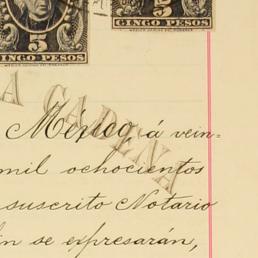 5 5
CINCO PESOS CINCO PESOS
A CADENA
México, á vein-
mil ochocientos
suscrito Notario
se expresarán,